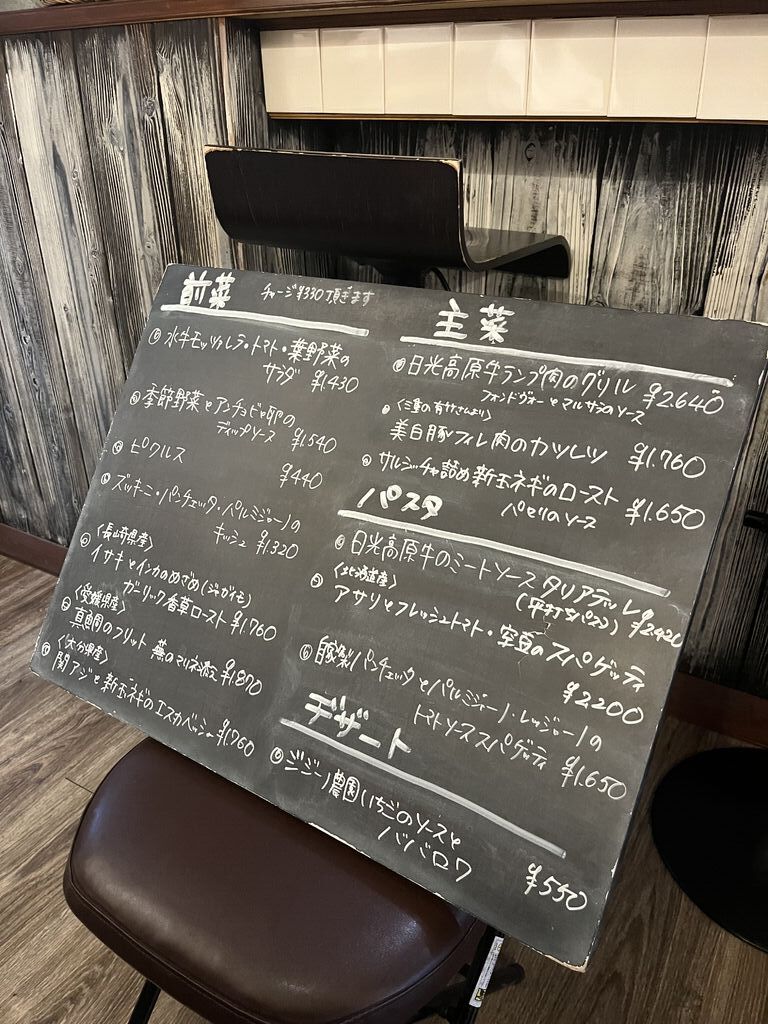 前菜 チャージ¥330頂きます
水牛モッツァレラ・トマト・葉野菜の
サラダ ¥1430
季節野菜とアンチョビと卵の
ディップソース ¥1.540
ピクルス
¥440
ズッキーニ・パンチェッタ・パルミジャーノの
キッシュ ¥1.320
〈長崎県産〉
イサキとインカのめざめ(ジャガイモ)
ガーリック香草ロースト ¥1.760
〈愛媛県産〉
真鯛のフリット 蕪のマリネ添え ¥1.870
〈大分県産〉
関アジと新玉ネギのエスカベッシュ ¥1.760
主菜
日光高原牛ランプ肉のグリル ¥2.640
フォンドヴォーとマルサラのソース
美白豚フィレ肉のカツレツ ¥1.760
サルシッチャ詰め新玉ネギのロースト
パセリのソース ¥1.650
パスタ
日光高原牛のミートソース タリアテッレ
(平打ちパスタ) ¥2.420
〈北海道産〉
アサリとフレッシュトマト・空豆のスパゲッティ
¥2200
自家製パンチェッタとパルミジャーノ・レッジャーノの
トマトソーススパゲッティ ¥1.650
デザート
ジジーノ農園いちごのソースと
ババロワ
¥550